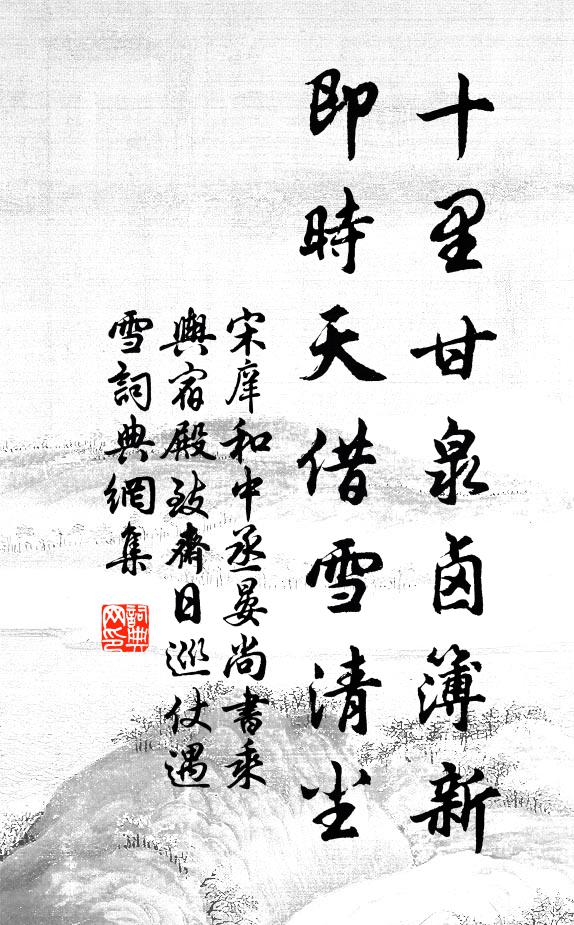 十里甘泉卤簿新
即時天借雪清尘
宋庠和中丞晏尚書乘
輿宿殿致齋日巡仗遇
雪詞典網集
詞典
网印